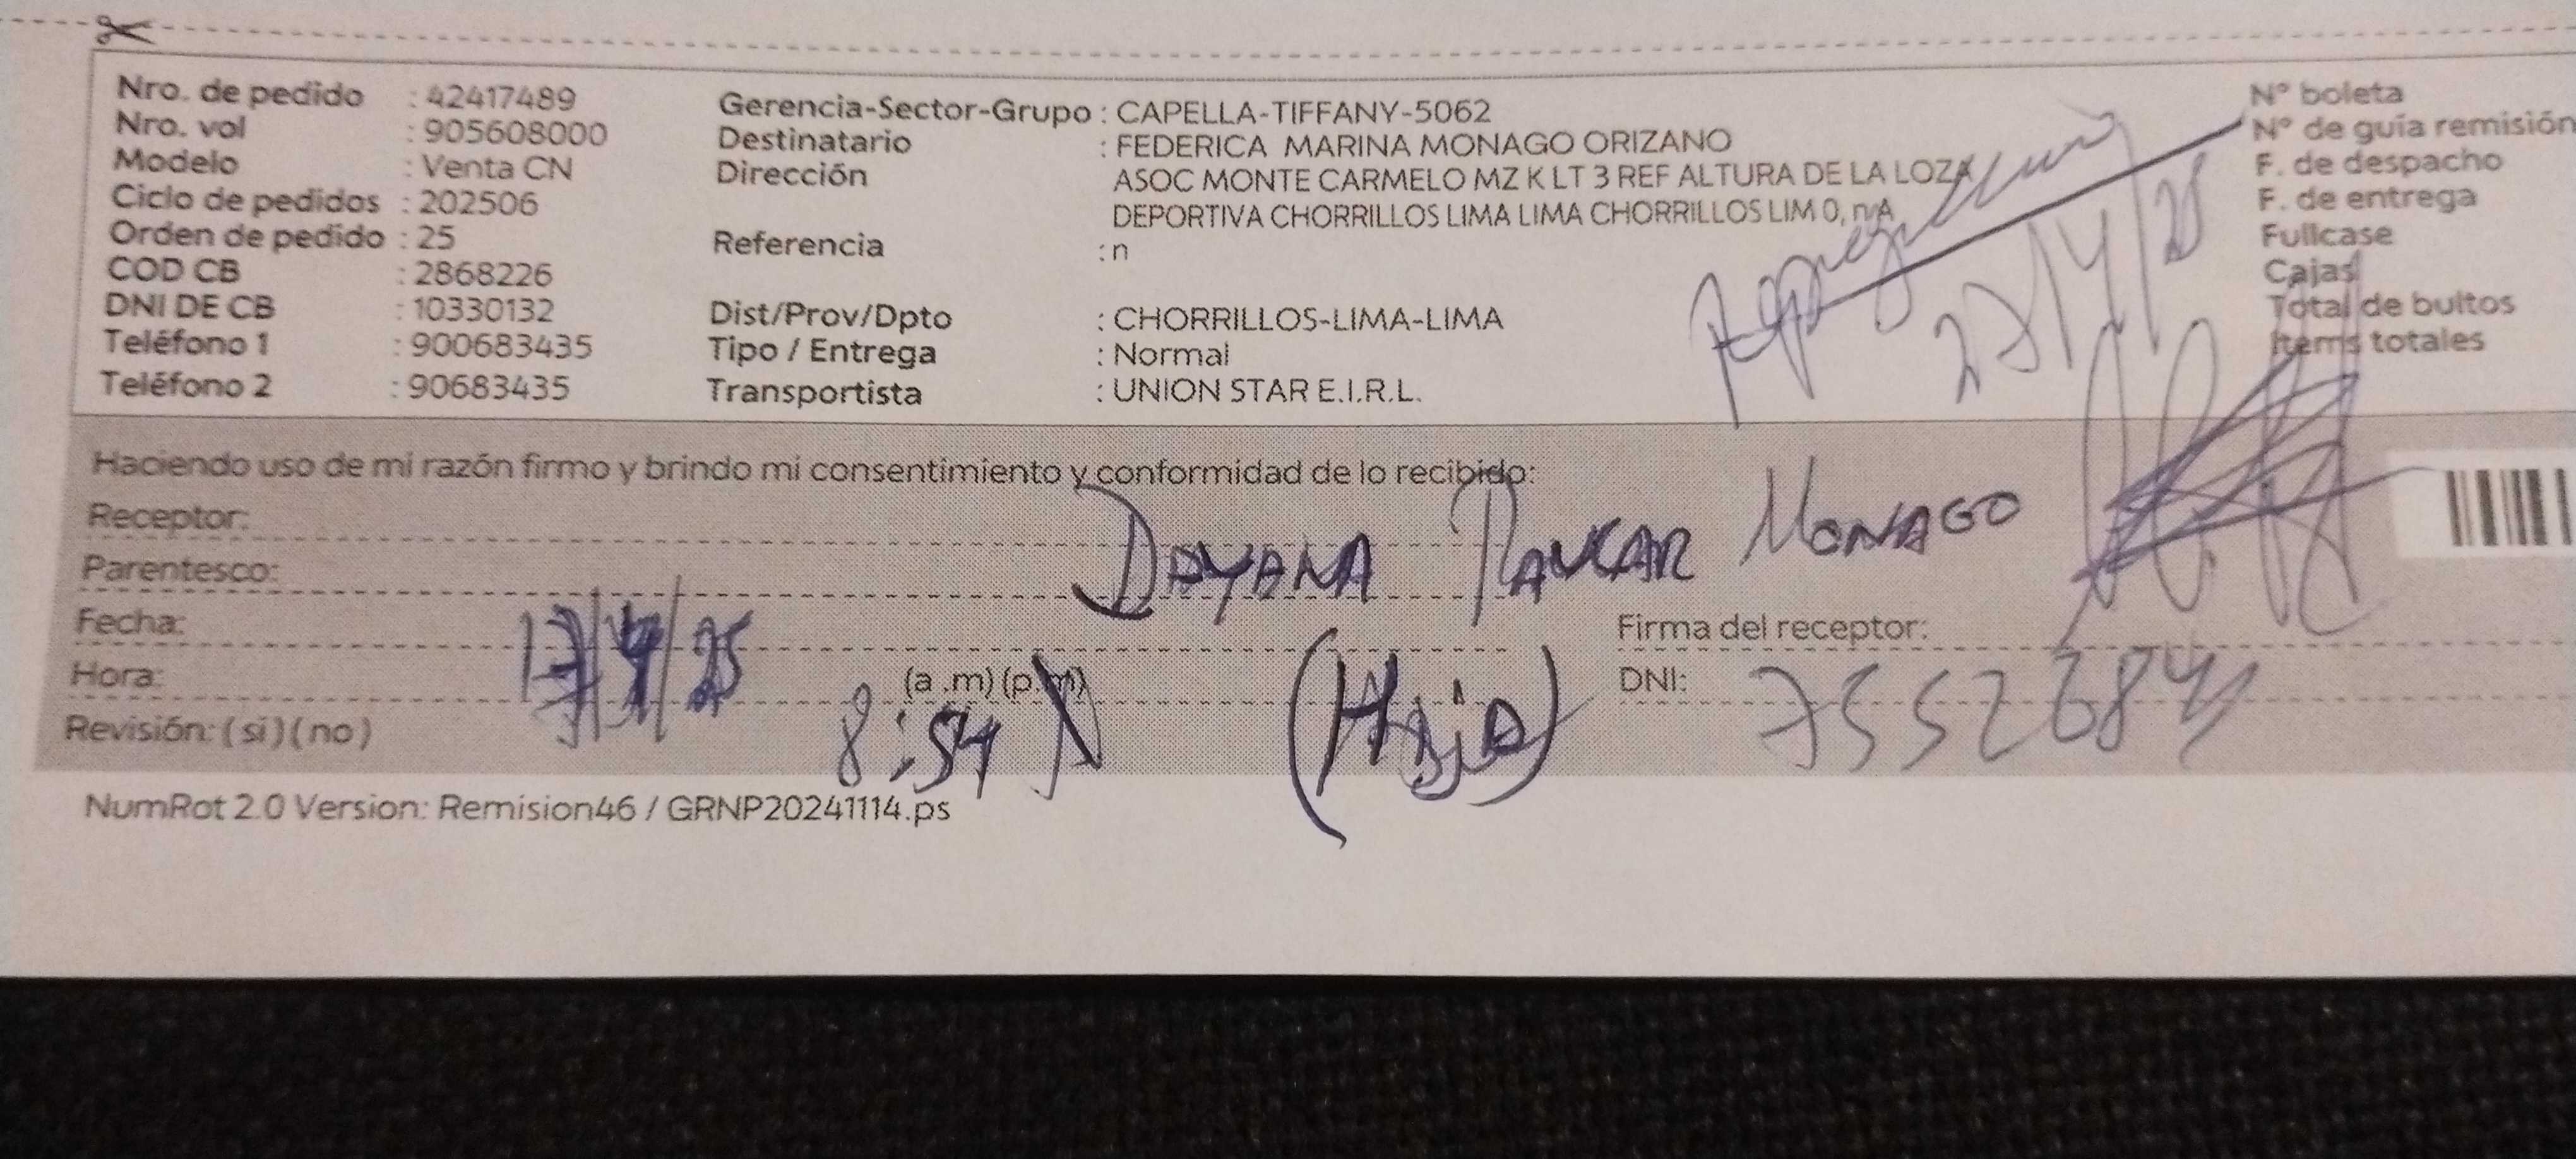 Nro. de pedido : 42417489
Nro. vol : 905608000
Modelo : Venta CN
Ciclo de pedidos : 202506
Orden de pedido : 25
COD CB : 2868226
DNI DE CB : 10330132
Teléfono 1 : 900683435
Teléfono 2 : 90683435
Gerencia-Sector-Grupo : CAPELLA-TIFFANY-5062
Destinatario : FEDERICA MARINA MONAGO ORIZANO
Dirección ASOC MONTE CARMELO MZ K LT 3 REF ALTURA DE LA LOZA
DEPORTIVA CHORRILLOS LIMA LIMA CHORRILLOS LIM 0, n/A
Referencia : n
Dist/Prov/Dpto : CHORRILLOS-LIMA-LIMA
Tipo / Entrega : Normal
Transportista : UNION STAR E.I.R.L.
N° boleta
N° de guía remisión
F. de despacho
F. de entrega
Fullcase
Cajas
Total de bultos
Items totales
Haciendo uso de mi razón firmo y brindo mi consentimiento y conformidad de lo recibido:
Receptor: DAYANA PAUCAR MONAGO
Parentesco: (Hija)
Fecha:
Firma del receptor:
Hora: (a .m) (p.m) 8:54
DNI:
Revisión: ( si ) ( no )
NumRot 2.0 Version: Remision46 / GRNP20241114.ps